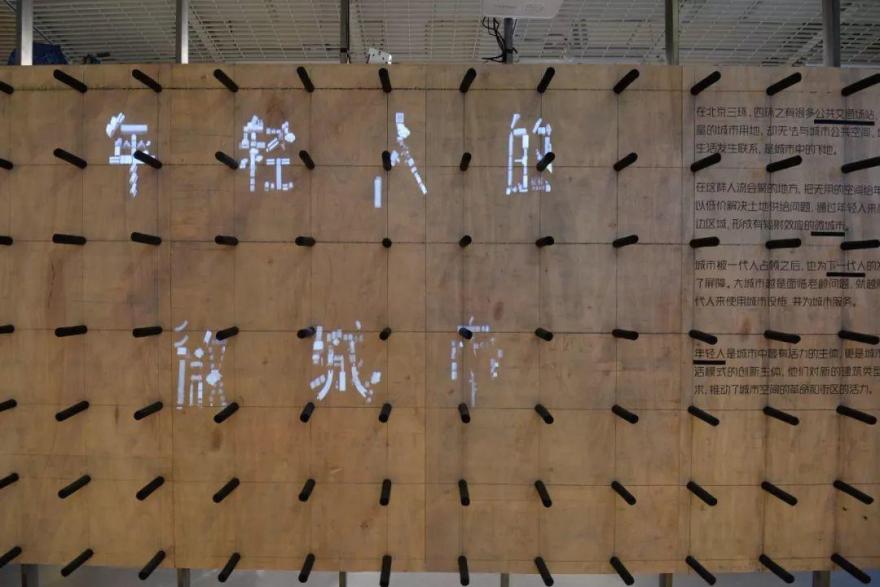 年轻人的
微城市
在北京三环，四环之有很多公共交通场站，
量的城市用地，却无法与城市公共空间，
生活发生联系，是城市中的飞地。
在这样人流会聚的地方，把无用的空间给年
以低价解决土地供给问题，通过年轻人来
边区域，形成有辐射效应的微城市。
城市被一代人占领之后，也为下一代人的
了屏障。大城市越是面临老龄问题，就越
代人来使用城市设施，并为城市服务。
年轻人是城市中最有活力的主体，更是城市
活模式的创新主体，他们对新的建筑类型
求，推动了城市空间的革命和街区的活力。